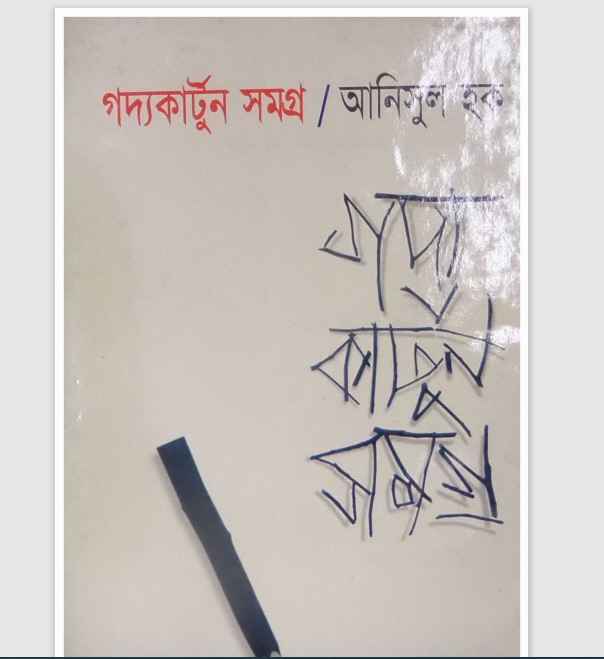 গদ্যকার্টুন সমগ্র / আনিসুল হক
গদ্য
কার্টুন
সমগ্র